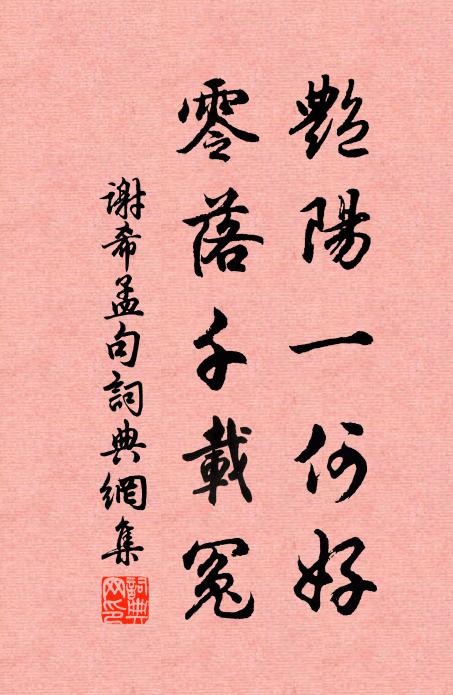 艷陽一何好
零落千載冤
謝希孟句詞典網集
詞典網印